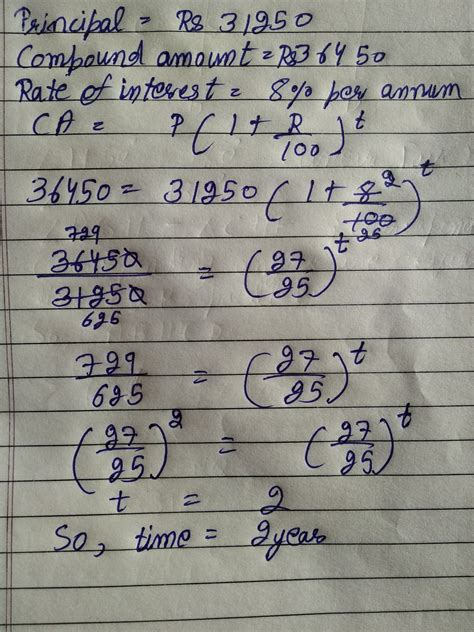 Principal = Rs 31250
Compound amount = Rs36450
Rate of interest = 8% per annum
CA = P(1 + R/100)^t
36450 = 31250(1 + 8 2/100 25)^t
729
36450/31250 = (27/25)^t
625
729/625 = (27/25)^t
(27/25)^2 = (27/25)^t
t = 2
So, time = 2year